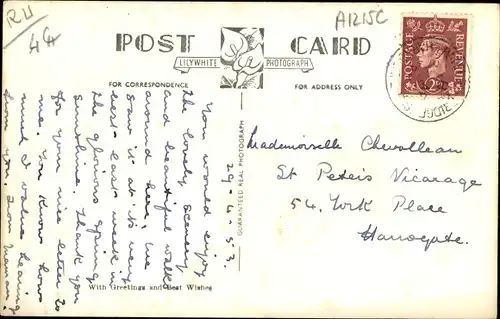 RU
4ç
A1215C
POST CARD
LILYWHITE PHOTOGRAPH
FOR CORRESPONDENCE
FOR ADDRESS ONLY
POSTAGE REVENUE
GUARANTEED REAL PHOTOGRAPH
29-4-53.
You would enjoy
the lovely scenery
and beautiful walks
around here, we
saw it at its very
best last week in
the glorious spring
sunshine. Thank you
for your nice letter to
me. You know how
much I value hearing
from you.
Mademoiselle Chevalleau
St Peter's Vicarage
54. York Place
Harrogate.
With Greetings and Best Wishes